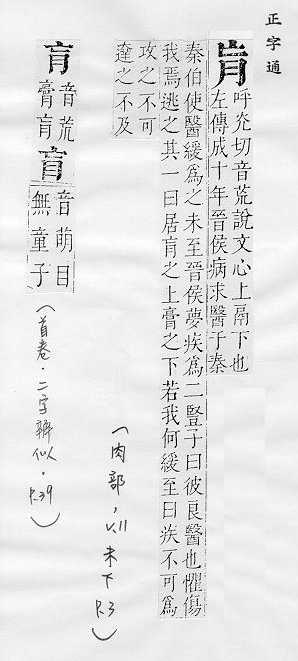 正字通
肓
呼光切音荒說文心上鬲下也
左傳成十年晉侯病求醫于秦
秦伯使醫緩爲之未至晉侯夢疾爲二豎子曰彼良醫也懼傷
我焉逃之其一曰居肓之上膏之下若我何緩至曰疾不可爲
攻之不可
達之不及
(肉部,v.11未下 p.3)
肓
音荒
膏肓
盲
音萌目
無童子
(首卷.二字辨似.p.39)